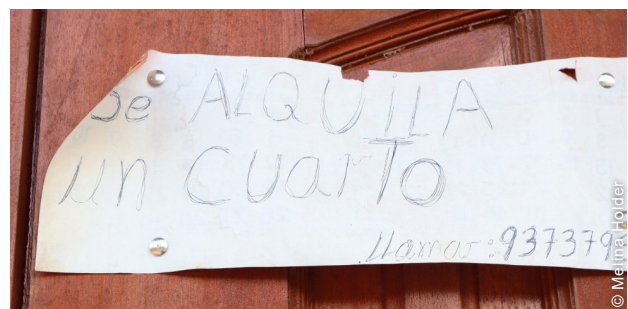 Se ALQUILA
un CuarTo
llamar: 937379
© Melina Holder